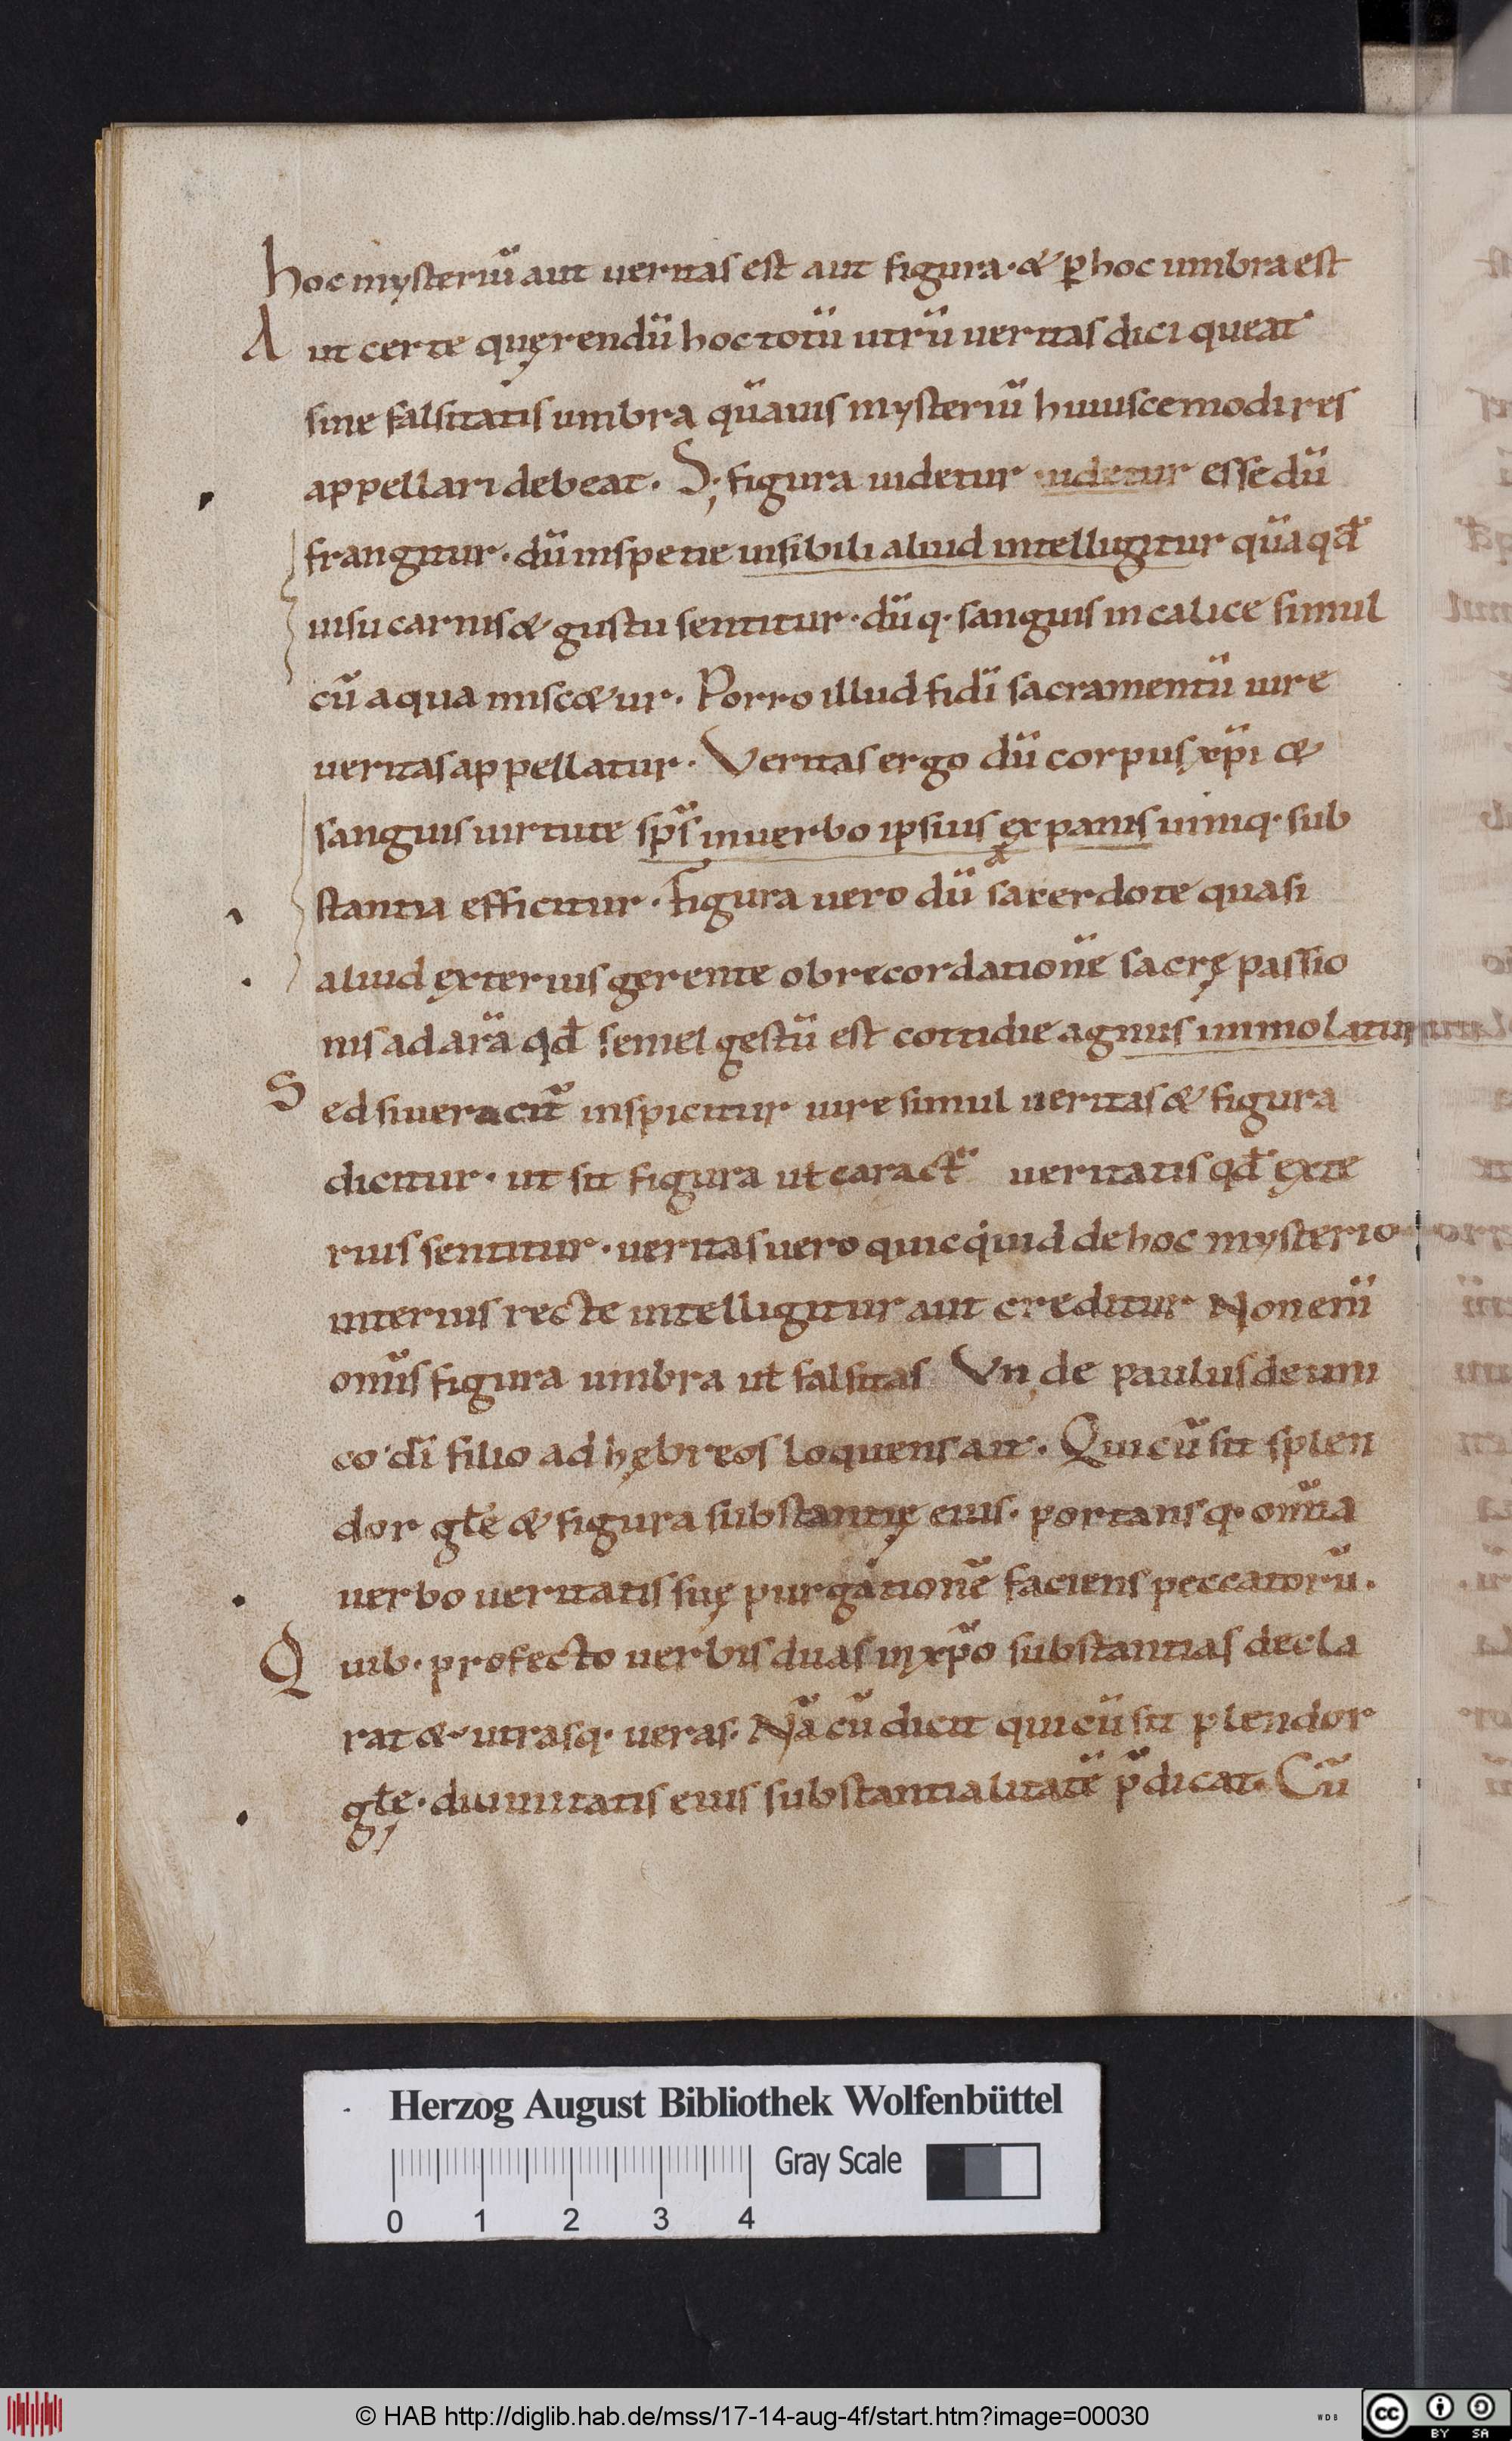 hoc mysteriū aut ueritas est aut figura· & ꝑ hoc umbra est
Aut certe quęrendū hoc totū utrū ueritas dici queat
sine falsitatis umbra quāuis mysteriū huiuscemodi res
appellari debeat. S; figura uidetur uidetur esse dū
frangitur· dū in spetie uisibili aliud intelligitur quā qđ
uisu carnis & gustu sentitur· dū q· sanguis in calice simul
cū aqua misc&ur. Porro illud fidī sacramentū iure
ueritas appellatur. Veritas ergo dū corpus xp̄i &
sanguis uirtute sp̄s in uerbo ipsius ex panis uiniq· sub
stantia efficitur. Figura uero dū sacerdote quasi
aliud exterius gerente ob recordationē sacrę passio
nis ad arā qđ semel gestū est cottidie agnus immolatur
Sed si ueraciť inspicitur iure simul ueritas & figura
dicitur· ut sit figura uł caract̄ ueritatis qđ exte
rius sentitur· ueritas uero quicquid de hoc mysterio
interius recte intelligitur aut creditur Non enī
om̄is figura umbra uł falsitas Vnde paulus de uni
co dī filio ad hębreos loquens ait. Qui cū sit splen
dor głe & figura substantię eius. portansq· om̄ia
uerbo ueritatis suę purgationē faciens peccatorū.
Quib· profecto uerbis duas in xp̄o substantias decla
rat & utrasq· ueras. Nā cū dicit qui cū sit plendor
głę· diuinitatis eius substantialitatē p̄dicat. Cū
Herzog August Bibliothek Wolfenbüttel
Gray Scale
0 1 2 3 4
© HAB http://diglib.hab.de/mss/17-14-aug-4f/start.htm?image=00030
WDB
cc BY SA